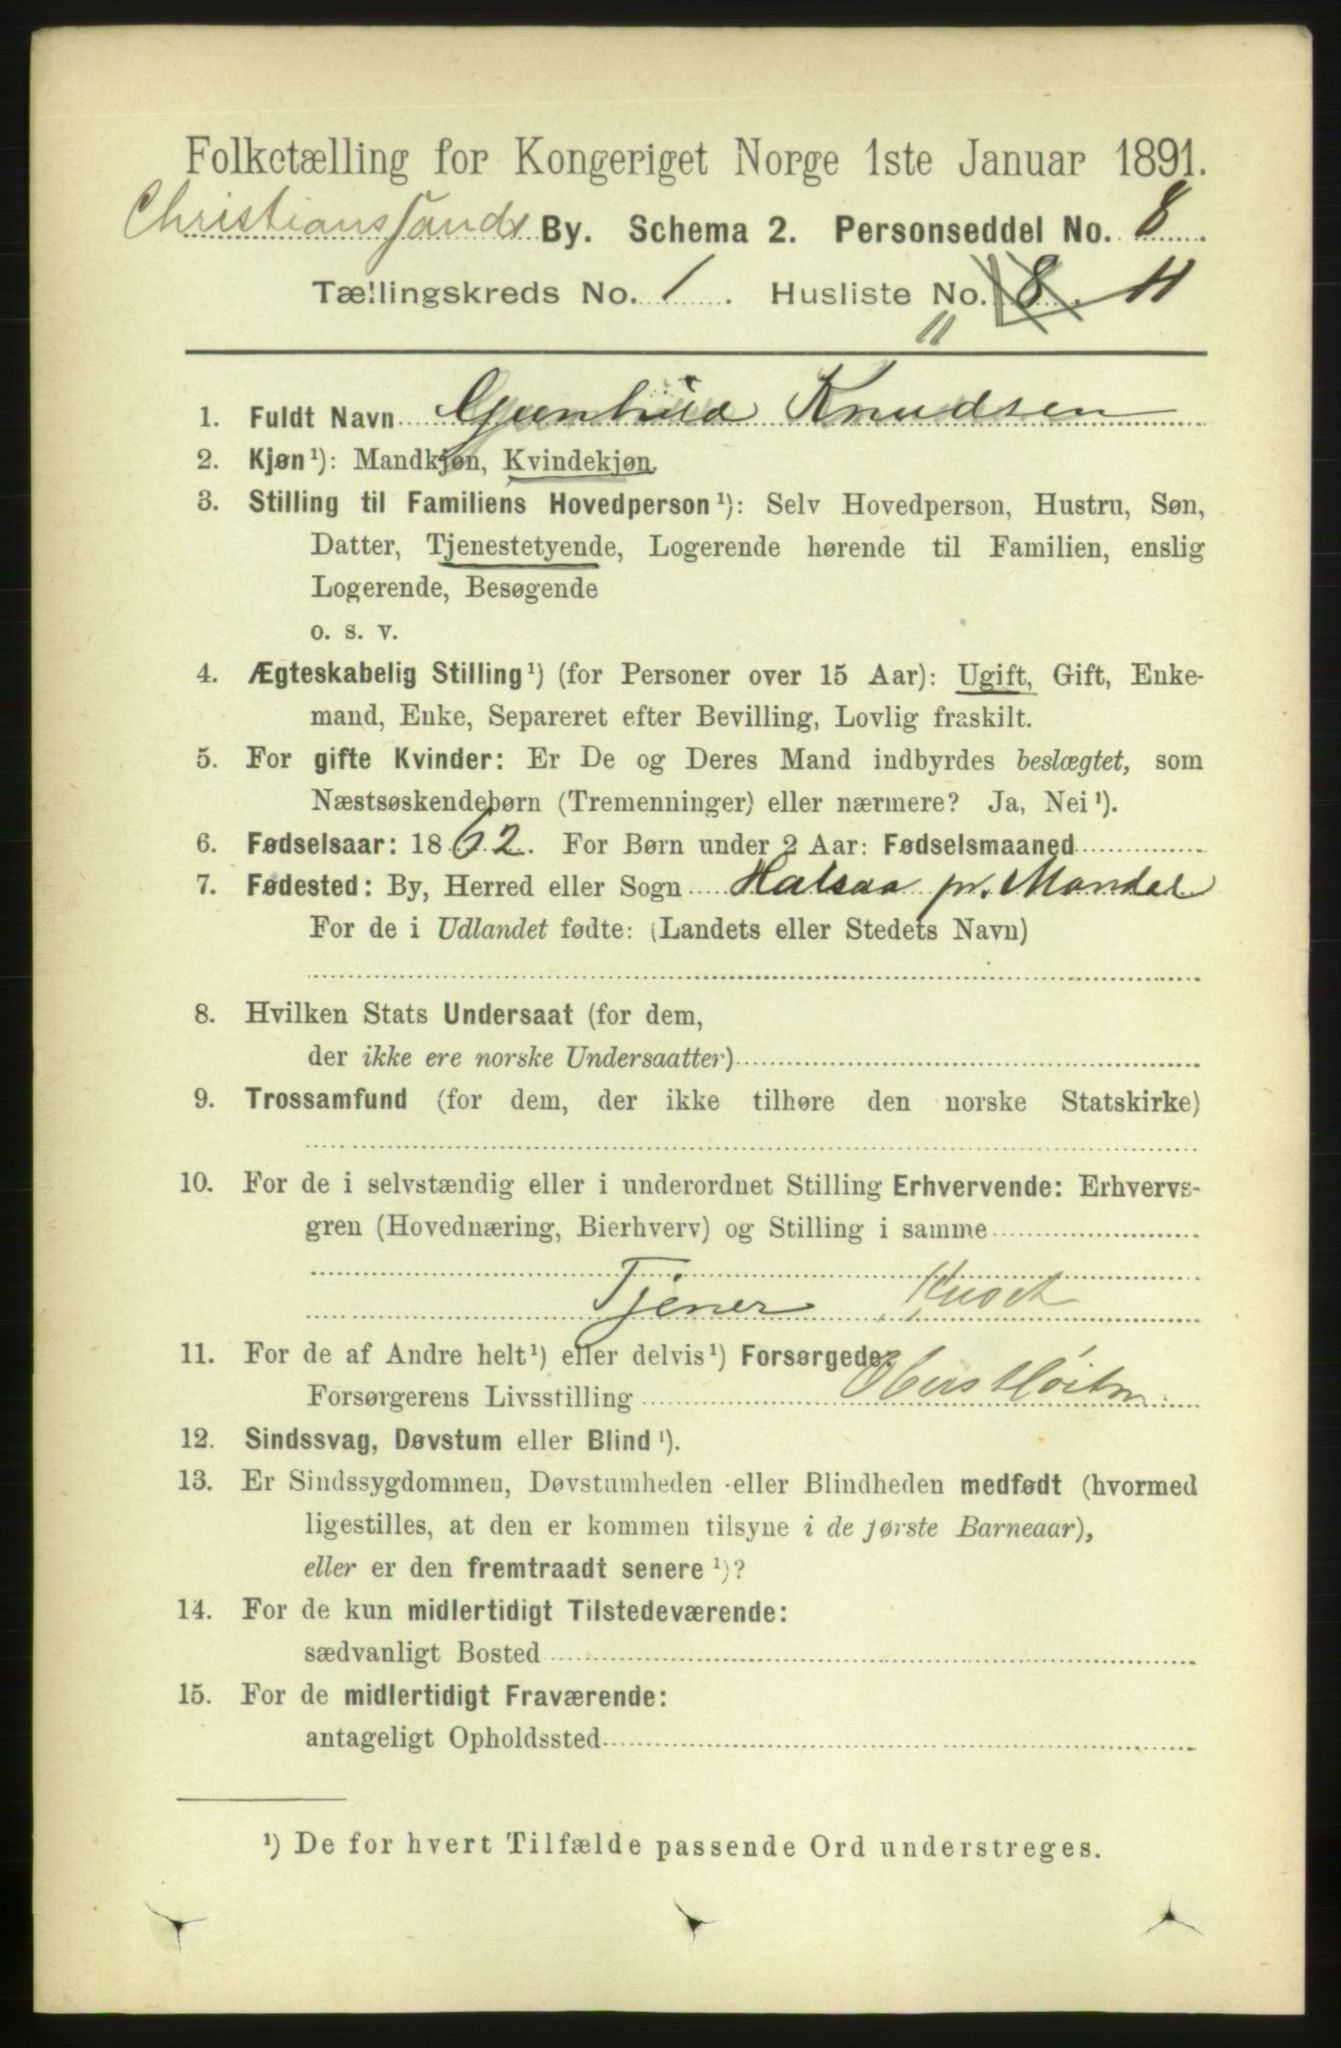 Folketælling for Kongeriget Norge 1ste Januar 1891.
Christianssands By. Schema 2. Personseddel No. 8
Tællingskreds No. 1. Husliste No. 8. 11
11
1. Fuldt Navn Gunhild Knudsen
2. Kjøn¹): Mandkjøn, Kvindekjøn.
3. Stilling til Familiens Hovedperson¹): Selv Hovedperson, Hustru, Søn,
Datter, Tjenestetyende, Logerende hørende til Familien, enslig
Logerende, Besøgende
o. s. v.
4. Ægteskabelig Stilling¹) (for Personer over 15 Aar): Ugift, Gift, Enke-
mand, Enke, Separeret efter Bevilling, Lovlig fraskilt.
5. For gifte Kvinder: Er De og Deres Mand indbyrdes beslægtet, som
Næstsøskendebørn (Tremenninger) eller nærmere? Ja, Nei¹).
6. Fødselsaar: 1862. For Børn under 2 Aar: Fødselsmaaned
7. Fødested: By, Herred eller Sogn Halsaa pr. Mandal
For de i Udlandet fødte: (Landets eller Stedets Navn)
8. Hvilken Stats Undersaat (for dem,
der ikke ere norske Undersaatter)
9. Trossamfund (for dem, der ikke tilhøre den norske Statskirke)
10. For de i selvstændig eller i underordnet Stilling Erhvervende: Erhvervs-
gren (Hovednæring, Bierhverv) og Stilling i samme
Tjener
11. For de af Andre helt¹) eller delvis¹) Forsørgede:
Forsørgerens Livsstilling
12. Sindssvag, Døvstum eller Blind¹).
13. Er Sindssygdommen, Døvstumheden eller Blindheden medfødt (hvormed
ligestilles, at den er kommen tilsyne i de første Barneaar),
eller er den fremtraadt senere¹)?
14. For de kun midlertidigt Tilstedeværende:
sædvanligt Bosted
15. For de midlertidigt Fraværende:
antageligt Opholdssted
¹) De for hvert Tilfælde passende Ord understreges.